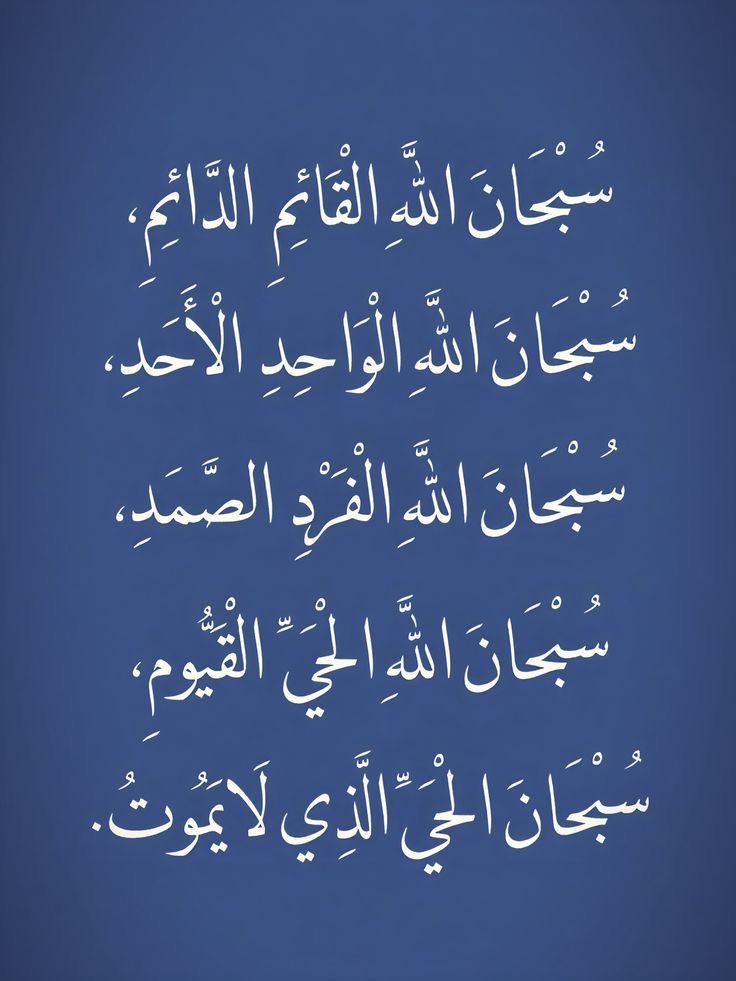 سُبْحَانَ اللَّهِ الْقَائِمِ الدَّائِمِ،
سُبْحَانَ اللَّهِ الْوَاحِدِ الْأَحَدِ،
سُبْحَانَ اللَّهِ الْفَرْدِ الصَّمَدِ،
سُبْحَانَ اللَّهِ الْحَيِّ الْقَيُّومِ،
سُبْحَانَ الْحَيِّ الَّذِي لَا يَمُوتُ.